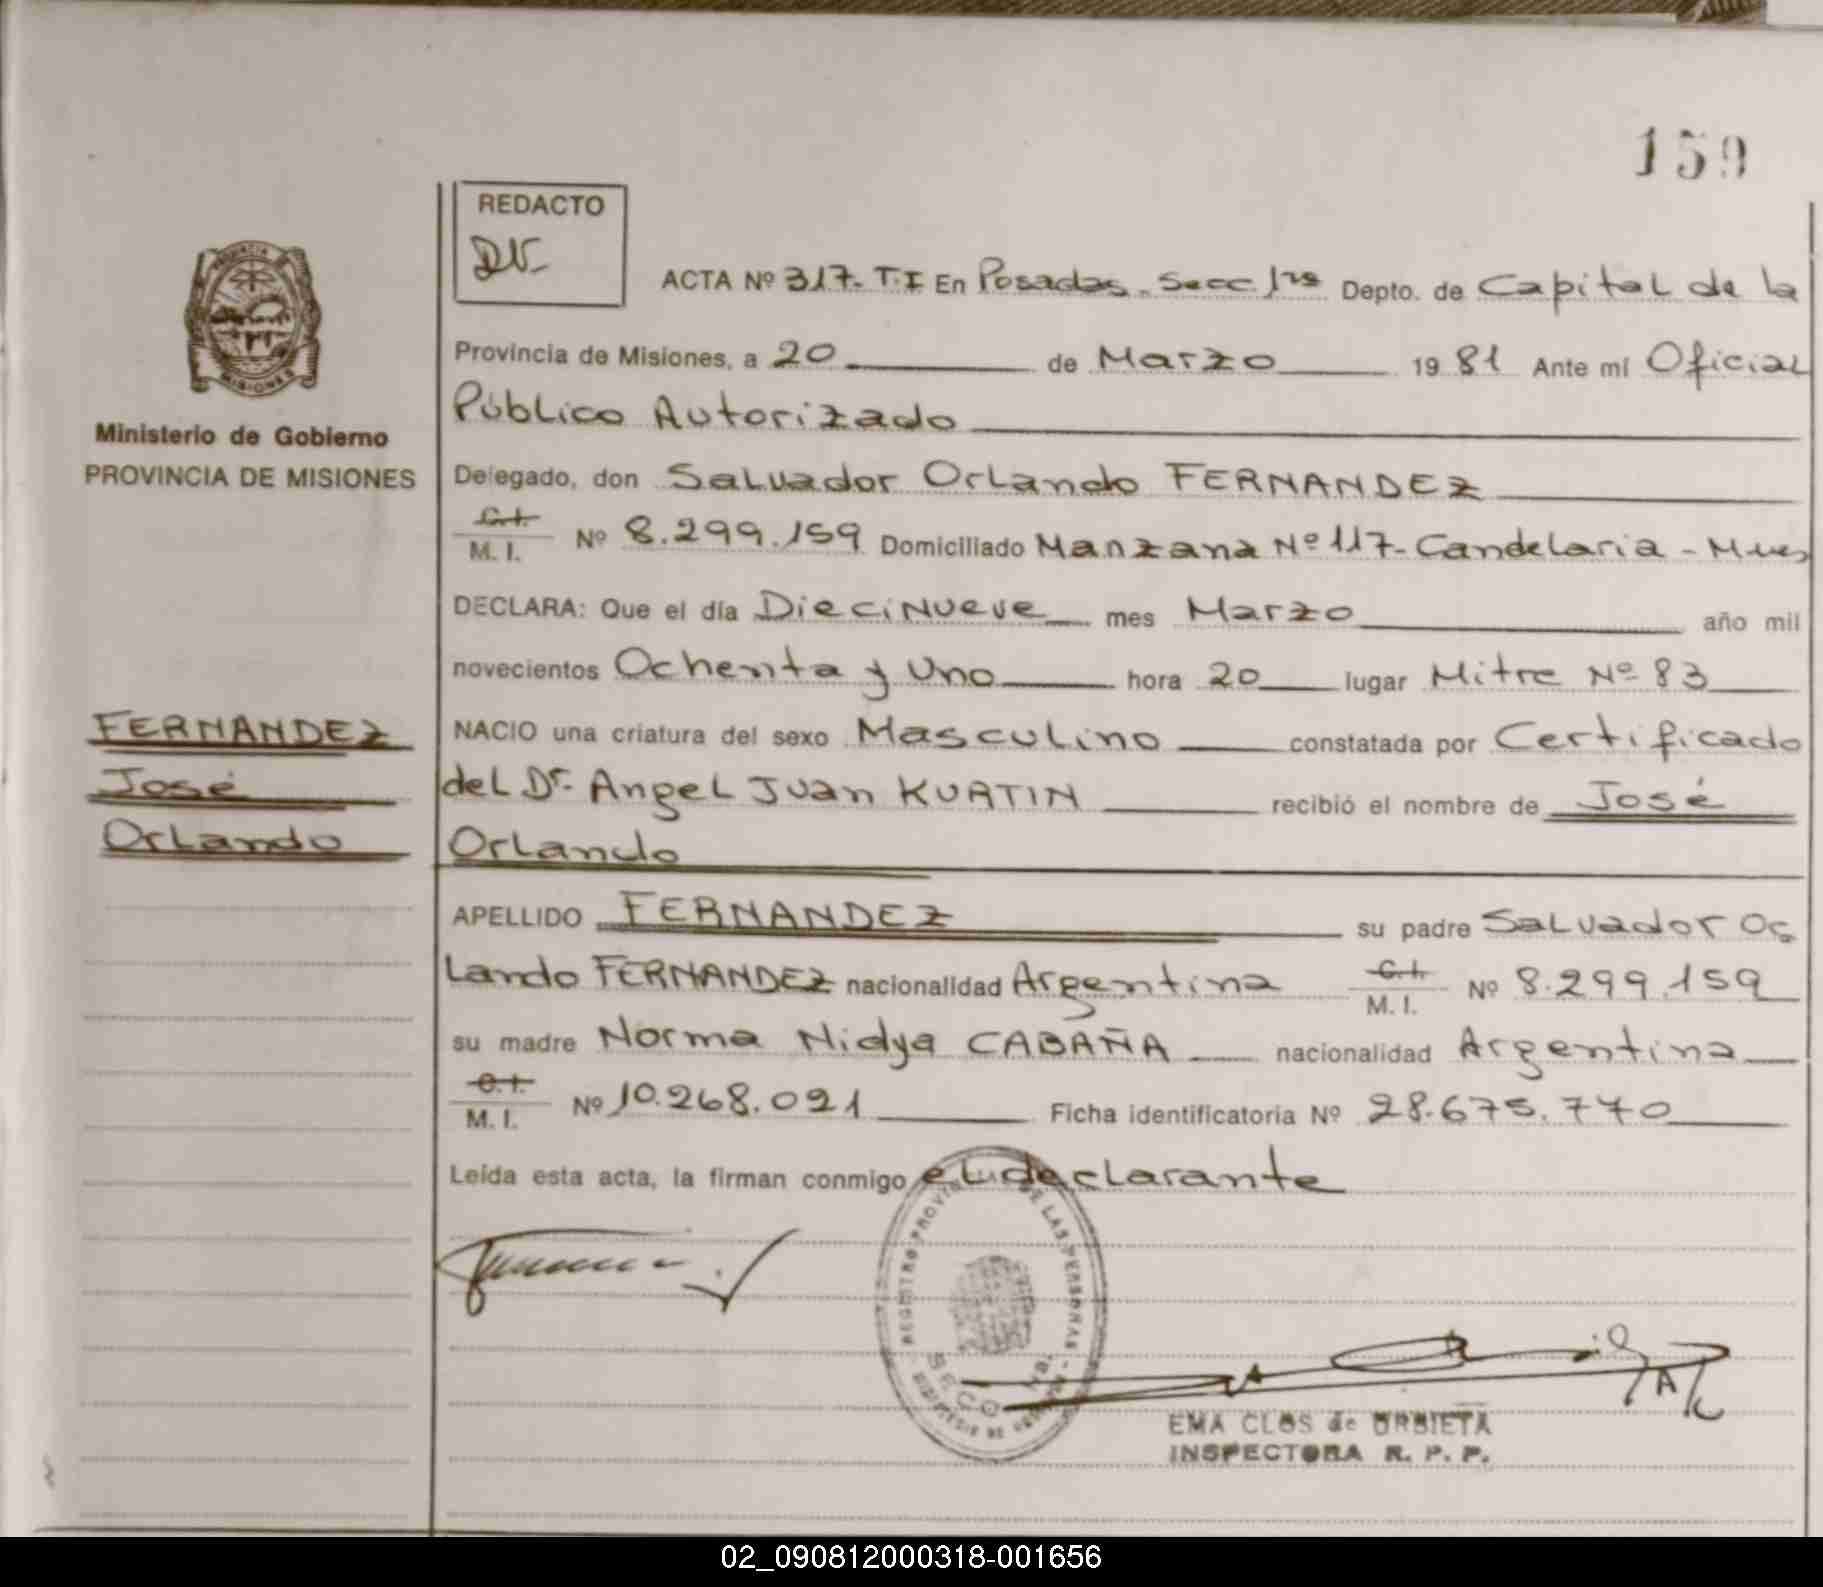 159
REDACTO
DV-
ACTA Nº 317- T.I En Posadas. Secc 1ra Depto. de Capital de la
Provincia de Misiones, a 20 de Marzo 1981 Ante mí Oficial
Público Autorizado
Ministerio de Gobierno
PROVINCIA DE MISIONES
Delegado, don Salvador Orlando FERNANDEZ
C.I. M. I. Nº 8.299.159 Domiciliado Manzana Nº 117- Candelaria - Mnes
DECLARA: Que el día Diecinueve mes Marzo año mil
novecientos Ochenta y Uno hora 20 lugar Mitre Nº 83
FERNANDEZ
José
Orlando
NACIO una criatura del sexo Masculino constatada por Certificado
del Dr. Angel Juan KURTIN recibió el nombre de José
Orlando
APELLIDO FERNANDEZ su padre Salvador Or
lando FERNANDEZ nacionalidad Argentina C.I. M. I. Nº 8.299.159
su madre Norma Nidya CABAÑA nacionalidad Argentina
C.I. M. I. Nº 10.268.021 Ficha identificatoria Nº 28.675.770
Leída esta acta, la firman conmigo el declarante
REGISTRO PROVINCIAL DE LAS PERSONAS
EMA CLOS de URBIETA
INSPECTORA R. P. P.
02_090812000318-001656